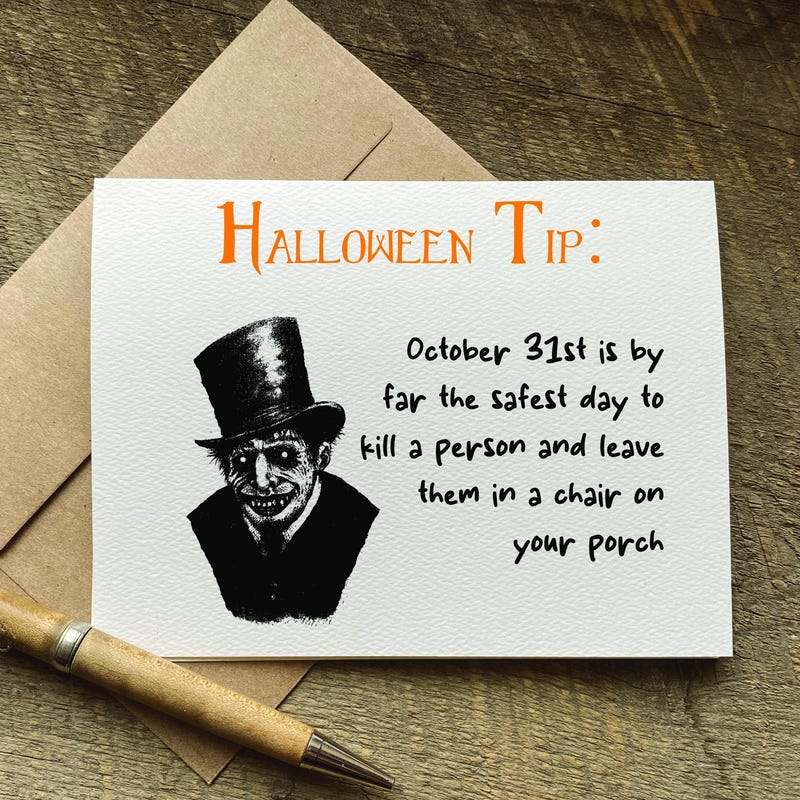 Halloween Tip:
October 31st is by
far the safest day to
kill a person and leave
them in a chair on
your porch